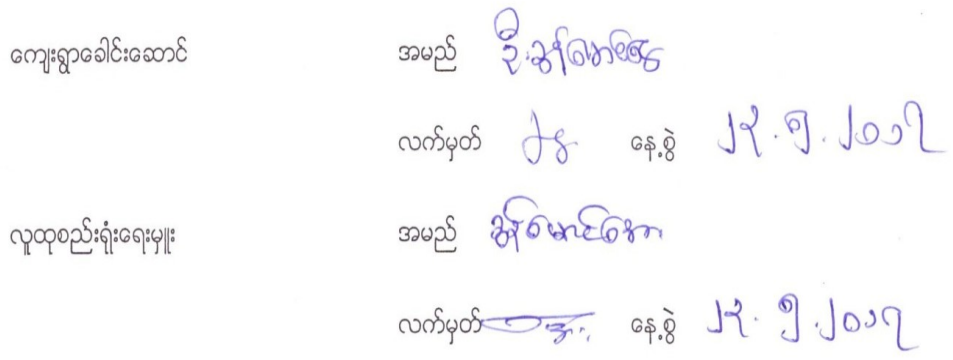 ကျေးရွာခေါင်းဆောင် အမည် ဦးခွန်မောင်ထွေ
လက်မှတ် နေ့စွဲ ၂၃.၅.၂၀၁၇
လူထုစည်းရုံးရေးမှူး အမည် ခွန်မောင်အေး
လက်မှတ် နေ့စွဲ ၂၃.၅.၂၀၁၇